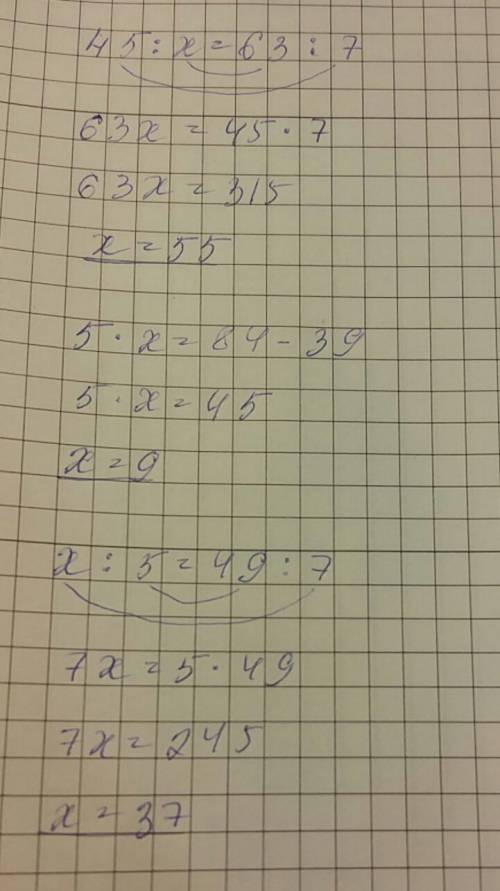 45 : x = 63 : 7
63x = 45 · 7
63x = 315
x = 55
5 · x = 84 - 39
5 · x = 45
x = 9
x : 5 = 49 : 7
7x = 5 · 49
7x = 245
x = 37